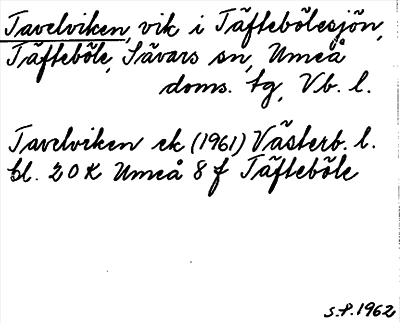 Tavelviken, vik i Täftebölesjön,
Täfteböle, Sävars sn, Umeå
doms. tg, Vb. l.
Tavelviken ek (1961) Västerb. l.
bl. 20 K Umeå 8 f Täfteböle
S.P. 1962